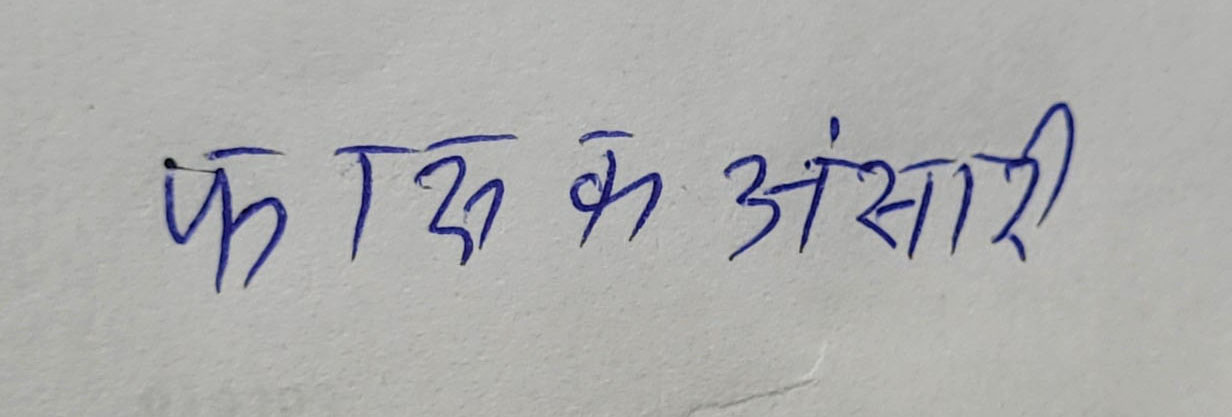 फारूक अंसारी